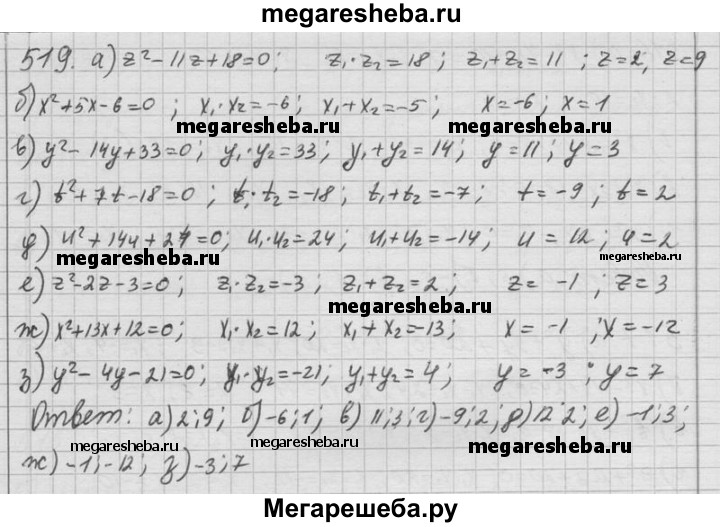 megaresheba.ru
519. а) z² - 11z + 18 = 0; z₁·z₂ = 18; z₁ + z₂ = 11; z = 2, z = 9
б) x² + 5x - 6 = 0; x₁·x₂ = -6; x₁ + x₂ = -5; x = -6; x = 1
megaresheba.ru megaresheba.ru
в) y² - 14y + 33 = 0; y₁·y₂ = 33; y₁ + y₂ = 14; y = 11; y = 3
г) t² + 7t - 18 = 0; t₁·t₂ = -18; t₁ + t₂ = -7; t = -9; t = 2
д) u² + 14u + 24 = 0; u₁·u₂ = 24; u₁ + u₂ = -14; u = 12; u = 2
megaresheba.ru megaresheba.ru
е) z² - 2z - 3 = 0; z₁·z₂ = -3; z₁ + z₂ = 2; z = -1; z = 3
megaresheba.ru
ж) x² + 13x + 12 = 0; x₁·x₂ = 12; x₁ + x₂ = -13; x = -1; x = -12
з) y² - 4y - 21 = 0; y₁·y₂ = -21; y₁ + y₂ = 4; y = -3; y = 7
megaresheba.ru megaresheba.ru
Ответ: а) 2; 9; б) -6; 1; в) 11; 3; г) -9; 2; д) 12; 2; е) -1; 3;
megaresheba.ru megaresheba.ru
ж) -1; -12; з) -3; 7
Мегарешеба.ру